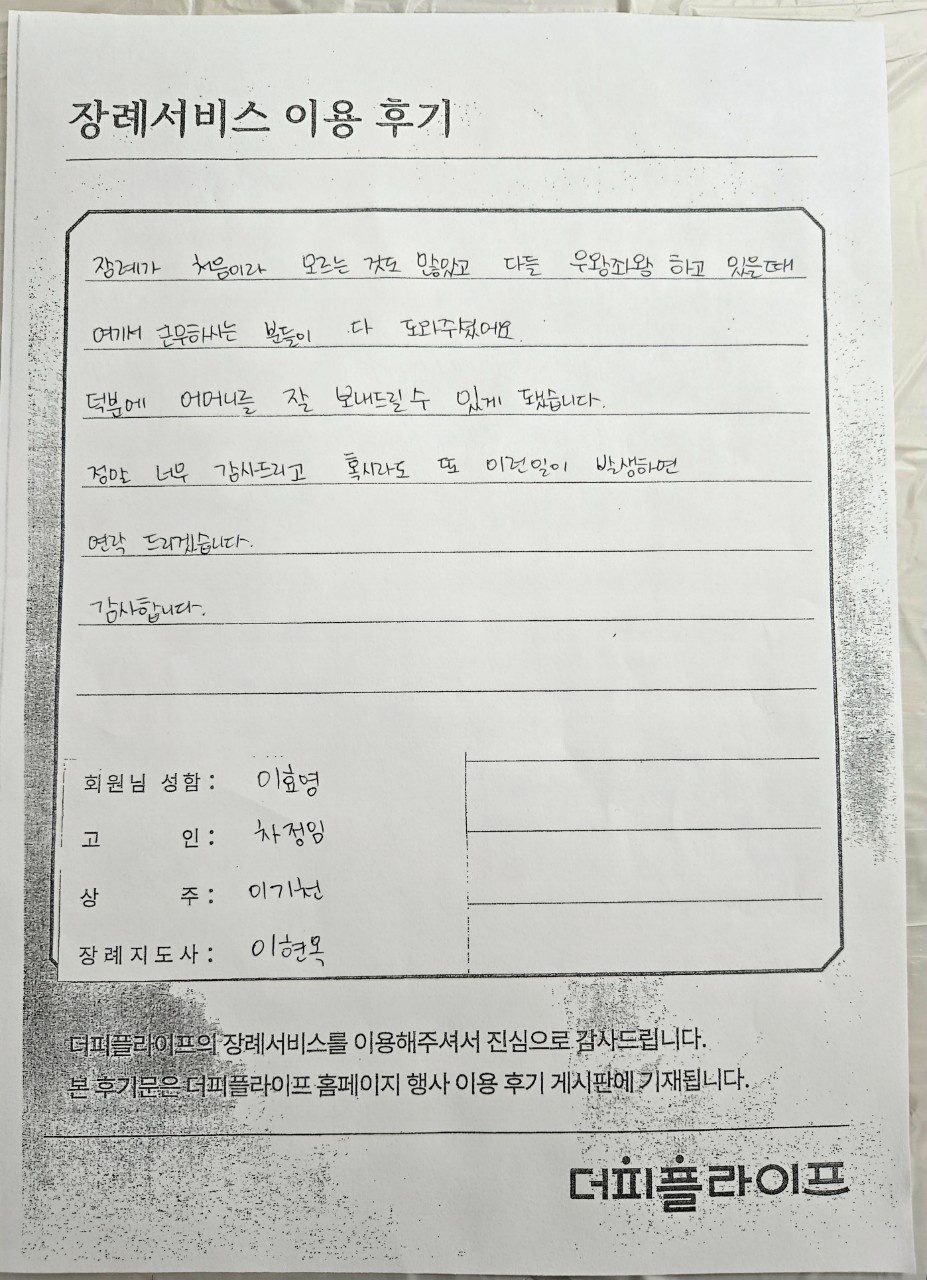 장례서비스 이용 후기
장례가 처음이라 모르는 것도 많았고 다들 우왕좌왕 하고 있을때
여기서 근무하시는 분들이 다 도와주셨어요.
덕분에 어머니를 잘 보내드릴수 있게 됐습니다.
정말 너무 감사드리고 혹시라도 또 이런일이 발생하면
연락 드리겠습니다.
감사합니다.
회원님 성함 : 이효영
고 인 : 차정임
상 주 : 이기천
장례지도사 : 이현목
더피플라이프의 장례서비스를 이용해주셔서 진심으로 감사드립니다.
본 후기문은 더피플라이프 홈페이지 행사 이용 후기 게시판에 기재됩니다.
더피플라이프